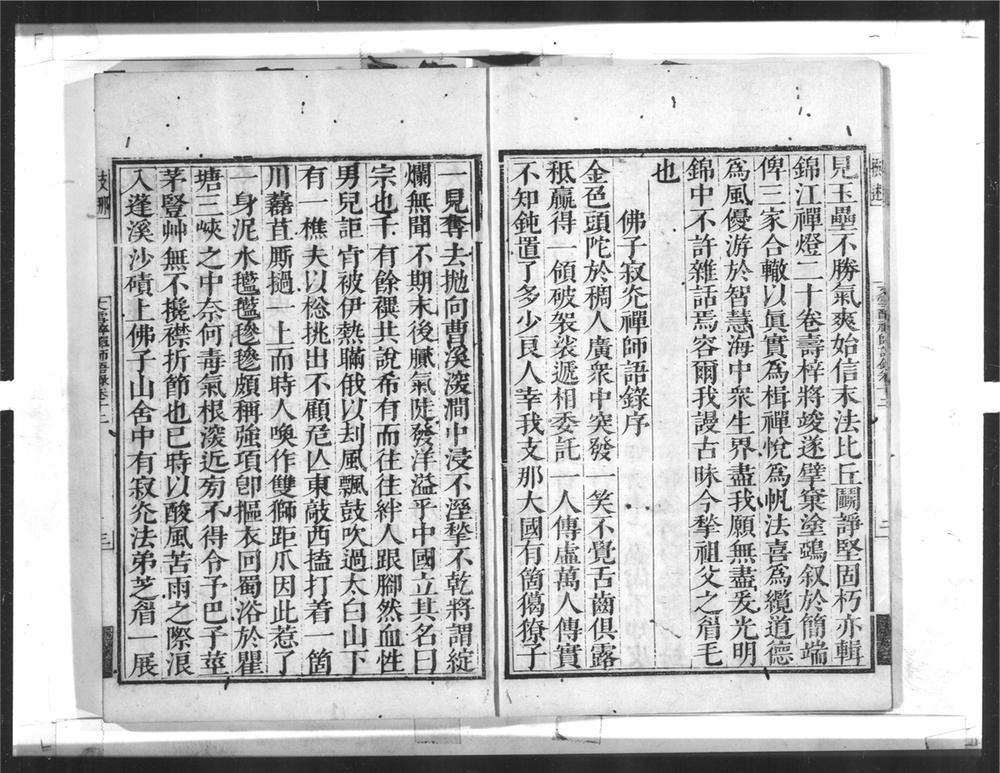 見玉壘不勝氣爽始信末法比丘鬬諍堅固朽亦輯
錦江禪燈二十卷壽梓將竣遂擘窠塗鴉叙於簡端
俾三家合轍以眞實為楫禪悅為帆法喜為纜道德
為風優游於智慧海中衆生界盡我願無盡爰光明
錦中不許雜話焉容爾我謾古昧今孳祖父之眉毛
也
佛子寂灮禪師語錄序
金色頭陀於稠人廣衆中突發一笑不覺舌齒俱露
秪贏得一領破袈裟遞相委託一人傳虛萬人傳實
不知鈍置了多少良人幸我支那大國有箇獦獠子
一見奪去拋向曹溪湲澗中浸不溼孳不乾將謂綻
爛無聞不期末後賦氣陡發洋溢乎中國立其名曰
宗也千有餘禩共說希有而往往絆人跟腳然血性
男兒詎肯被伊熱瞞俄以刦風飄鼓吹過太白山下
有一樵夫以檧挑出不顧危亾東敲西搕打着一箇
川蘿苴厮撾一上而時人喚作雙獅距爪因此惹了
一身泥水𣰦𣰦毿毿頗稱強項卽摳衣回蜀浴於瞿
塘三峽之中奈何毒氣根湥近旁不得令予巴子莖
茅豎艸無不攙襟折節也已時以酸風苦雨之際浪
入蓬溪沙磧上佛子山舍中有寂灮法弟芝眉一展